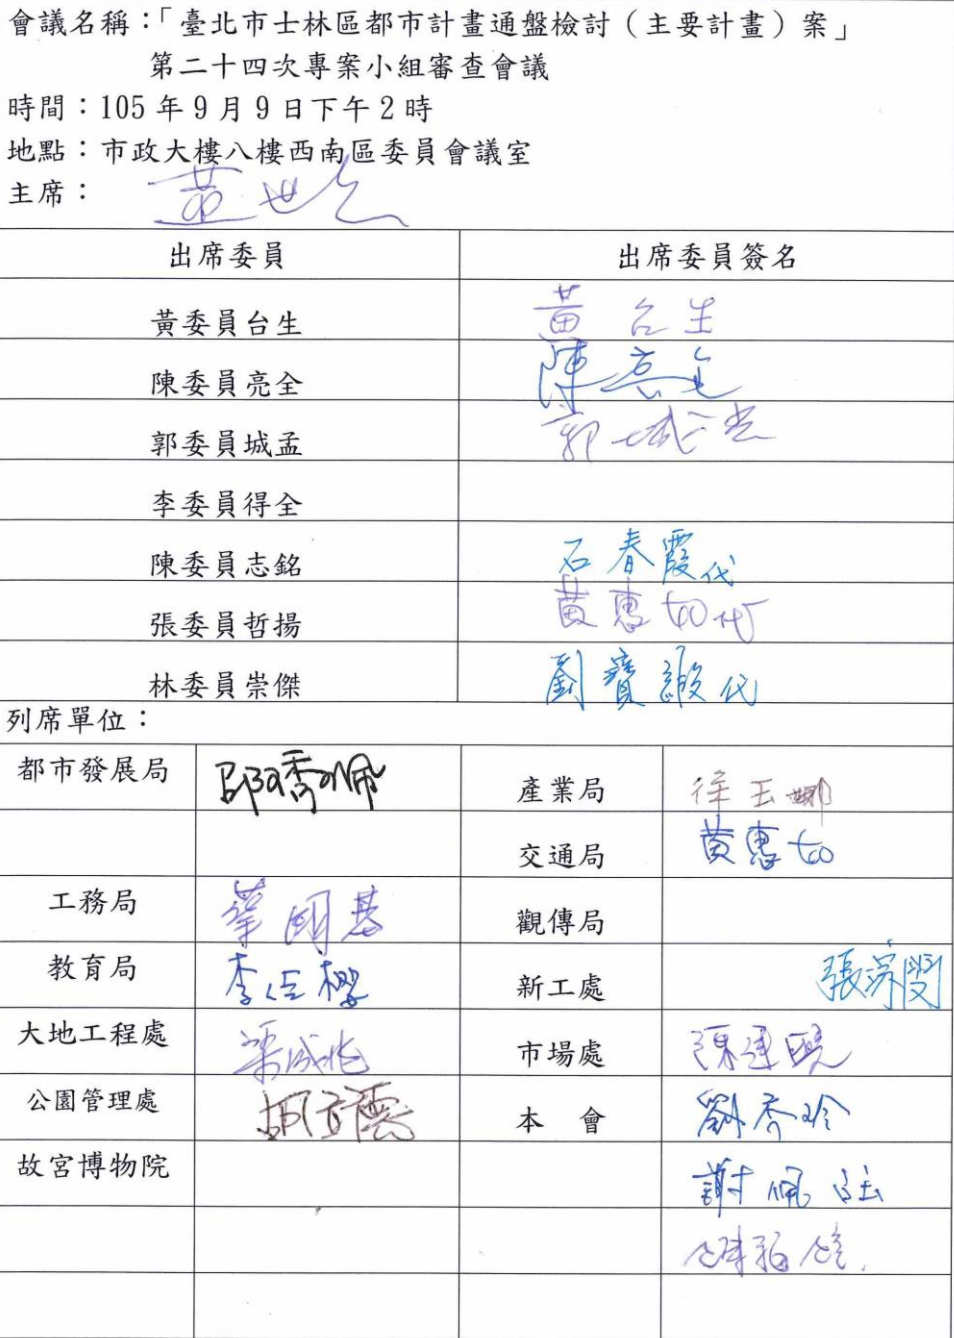 會議名稱：「臺北市士林區都市計畫通盤檢討（主要計畫）案」
第二十四次專案小組審查會議
時間：105年9月9日下午2時
地點：市政大樓八樓西南區委員會議室
主席：黃世
出席委員 出席委員簽名
黃委員台生 黃台生
陳委員亮全 陳亮全
郭委員城孟 郭城孟
李委員得全
陳委員志銘 石春霞代
張委員哲揚 黃惠如代
林委員崇傑 劉寶緞代
列席單位：
都市發展局 邵琇珮 產業局 徐玉娜
交通局 黃惠如
工務局 明基 觀傳局
教育局 李 新工處 張
大地工程處 梁成兆 市場處 陳建
公園管理處 胡 本 會 劉秀玲
故宮博物院 謝佩